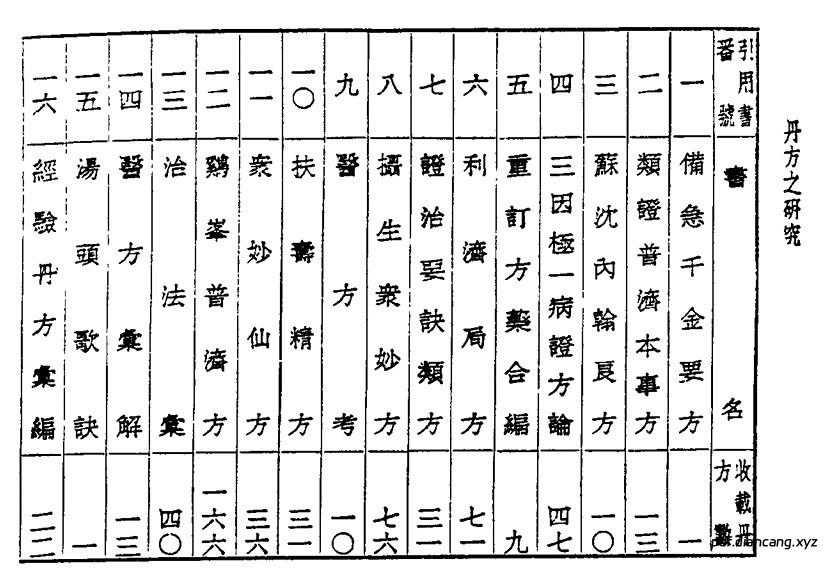 丹方之研究
引用書番號 書名 收載丹方數
一 備急千金要方 一
二 類證普濟本事方 一三
三 蘇沈內翰良方 一〇
四 三因極一病證方論 四七
五 重訂方藥合編 九
六 利濟局方 七一
七 證治要訣類方 三一
八 攝生衆妙方 七六
九 醫方考 一〇
一〇 扶壽精方 三一
一一 衆妙仙方 三六
一二 鷄峯普濟方 一六六
一三 治法彙 四〇
一四 醫方彙解 一三
一五 湯頭歌訣 一
一六 經驗丹方彙編 二二
pdf.diancang.xyz